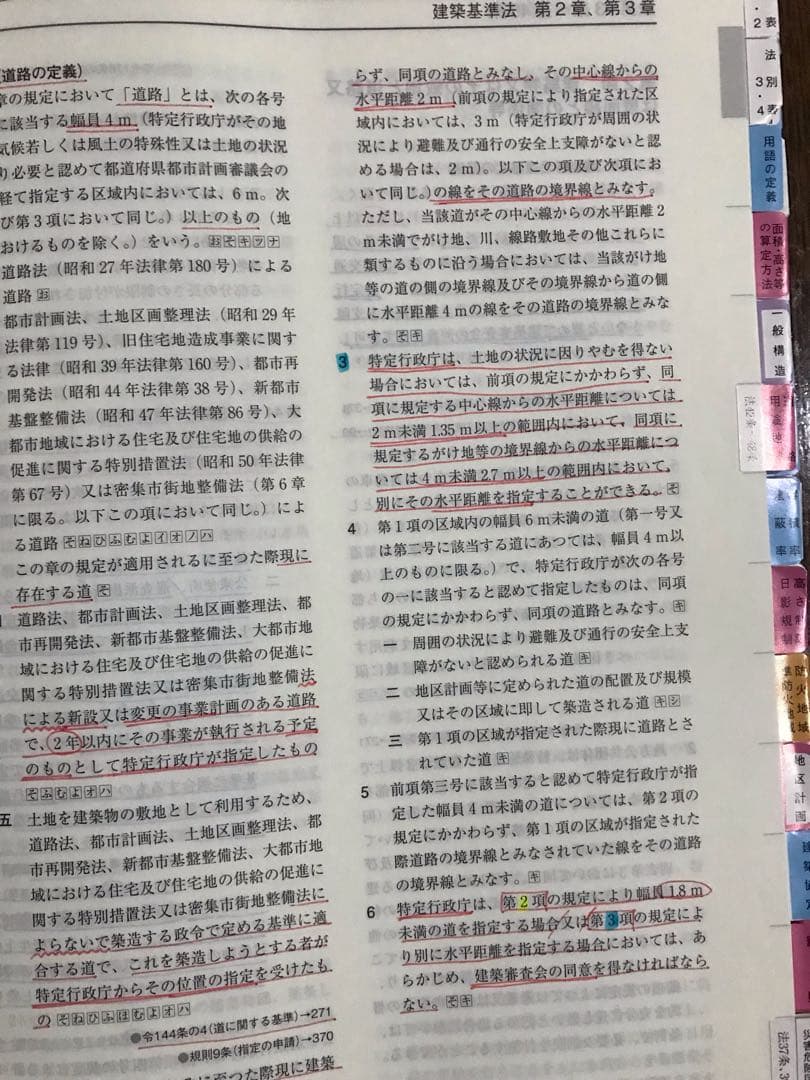 建築基準法 第2章、第3章
(道路の定義)
章の規定において「道路」とは、次の各号
に該当する幅員4m(特定行政庁がその地
気候若しくは風土の特殊性又は土地の状況
り必要と認めて都道府県都市計画審議会の
経て指定する区域内においては、6m。次
び第3項において同じ。)以上のもの(地
おけるものを除く。)をいう。おそキツナ
道路法(昭和27年法律第180号)による
道路 お
都市計画法、土地区画整理法(昭和29年
法律第119号)、旧住宅地造成事業に関す
る法律(昭和39年法律第160号)、都市再
開発法(昭和44年法律第38号)、新都市
基盤整備法(昭和47年法律第86号)、大
都市地域における住宅及び住宅地の供給の
促進に関する特別措置法(昭和50年法律
第67号)又は密集市街地整備法(第6章
に限る。以下この項において同じ。)によ
る道路 そねひふむよイオノハ
この章の規定が適用されるに至つた際現に
存在する道 そ
道路法、都市計画法、土地区画整理法、都
市再開発法、新都市基盤整備法、大都市地
域における住宅及び住宅地の供給の促進に
関する特別措置法又は密集市街地整備法
による新設又は変更の事業計画のある道路
で、2年以内にその事業が執行される予定
のものとして特定行政庁が指定したもの
そふむよオハ
五 土地を建築物の敷地として利用するため、
道路法、都市計画法、土地区画整理法、都
市再開発法、新都市基盤整備法、大都市地
域における住宅及び住宅地の供給の促進に
関する特別措置法又は密集市街地整備法に
よらないで築造する政令で定める基準に適
合する道で、これを築造しようとする者が
特定行政庁からその位置の指定を受けたも
の そねひふほむよオハ
●令144条の4(道に関する基準)→271
●規則9条(指定の申請)→370
に至つた際現に建築
らず、同項の道路とみなし、その中心線からの
水平距離2m(前項の規定により指定された区
域内においては、3m(特定行政庁が周囲の状
況により避難及び通行の安全上支障がないと認
める場合は、2m)。以下この項及び次項にお
いて同じ。)の線をその道路の境界線とみなす。
ただし、当該道がその中心線からの水平距離2
m未満でがけ地、川、線路敷地その他これらに
類するものに沿う場合においては、当該がけ地
等の道の側の境界線及びその境界線から道の側
に水平距離4mの線をその道路の境界線とみな
す。そキ
3 特定行政庁は、土地の状況に因りやむを得ない
場合においては、前項の規定にかかわらず、同
項に規定する中心線からの水平距離については
2m未満1.35m以上の範囲内において、同項に
規定するがけ地等の境界線からの水平距離につ
いては4m未満2.7m以上の範囲内において、
別にその水平距離を指定することができる。そ
4 第1項の区域内の幅員6m未満の道(第一号又
は第二号に該当する道にあつては、幅員4m以
上のものに限る。)で、特定行政庁が次の各号
の一に該当すると認めて指定したものは、同項
の規定にかかわらず、同項の道路とみなす。キ
一 周囲の状況により避難及び通行の安全上支
障がないと認められる道 キ
二 地区計画等に定められた道の配置及び規模
又はその区域に即して築造される道 キシ
三 第1項の区域が指定された際現に道路とさ
れていた道 キ
5 前項第三号に該当すると認めて特定行政庁が指
定した幅員4m未満の道については、第2項の
規定にかかわらず、第1項の区域が指定された
際道路の境界線とみなされていた線をその道路
の境界線とみなす。キ
6 特定行政庁は、第2項の規定により幅員1.8m
未満の道を指定する場合又は第3項の規定によ
り別に水平距離を指定する場合においては、あ
らかじめ、建築審査会の同意を得なければなら
ない。そキ
・2表
法別
3・表
4
用語の定義
面積・高さ等
の算定方法
一般構造
用
法42条
蔽率
積率
高さ制
日影規制
防火地域
準防火地域
地区計画
建築
法37条、3